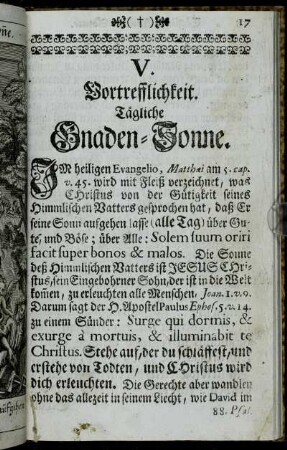 ( † ) 17
V.
Vortrefflichkeit.
Tägliche
Gnaden-Sonne.
IM heiligen Evangelio, Matthæi am 5. cap.
v. 45. wird mit Fleiß verzeichnet, was
CHristus von der Gütigkeit seines
Himmlischen Vatters gesprochen hat, daß Er
seine Sonn aufgehen lasse (alle Tag) über Gu-
te, und Böse; über Alle: Solem suum oriri
facit super bonos & malos. Die Sonne
deß Himmlischen Vatters ist JESUS CHri-
stus, sein Eingebohrner Sohn, der ist in die Welt
kom̃en, zu erleuchten alle Menschen. Joan. 1. v. 9.
Darum sagt der H. Apostel Paulus Ephes. 5. v. 14.
zu einem Sünder: Surge qui dormis, &
exurge à mortuis, & illuminabit te
Christus. Stehe auf, der du schläffest, und
erstehe von Todten, und CHristus wird
dich erleuchten. Die Gerechte aber wandlen
ohne das allezeit in seinem Liecht, wie David im
88. Psal.